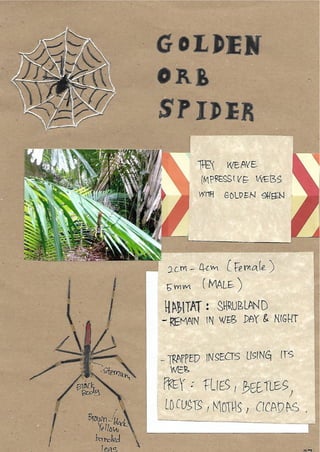 GOLDEN
ORB
SPIDER
THEY WEAVE
IMPRESSIVE WEBS
WITH GOLDEN SHEEN
2cm - 4cm (Female)
5mm (MALE)
HABITAT : SHRUBLAND
- REMAIN IN WEB DAY & NIGHT
- TRAPPED INSECTS USING ITS
WEB
PREY : FLIES, BEETLES,
LOCUSTS, MOTHS, CICADAS.
Black
Body
Brown - black
Yellow
banded
legs